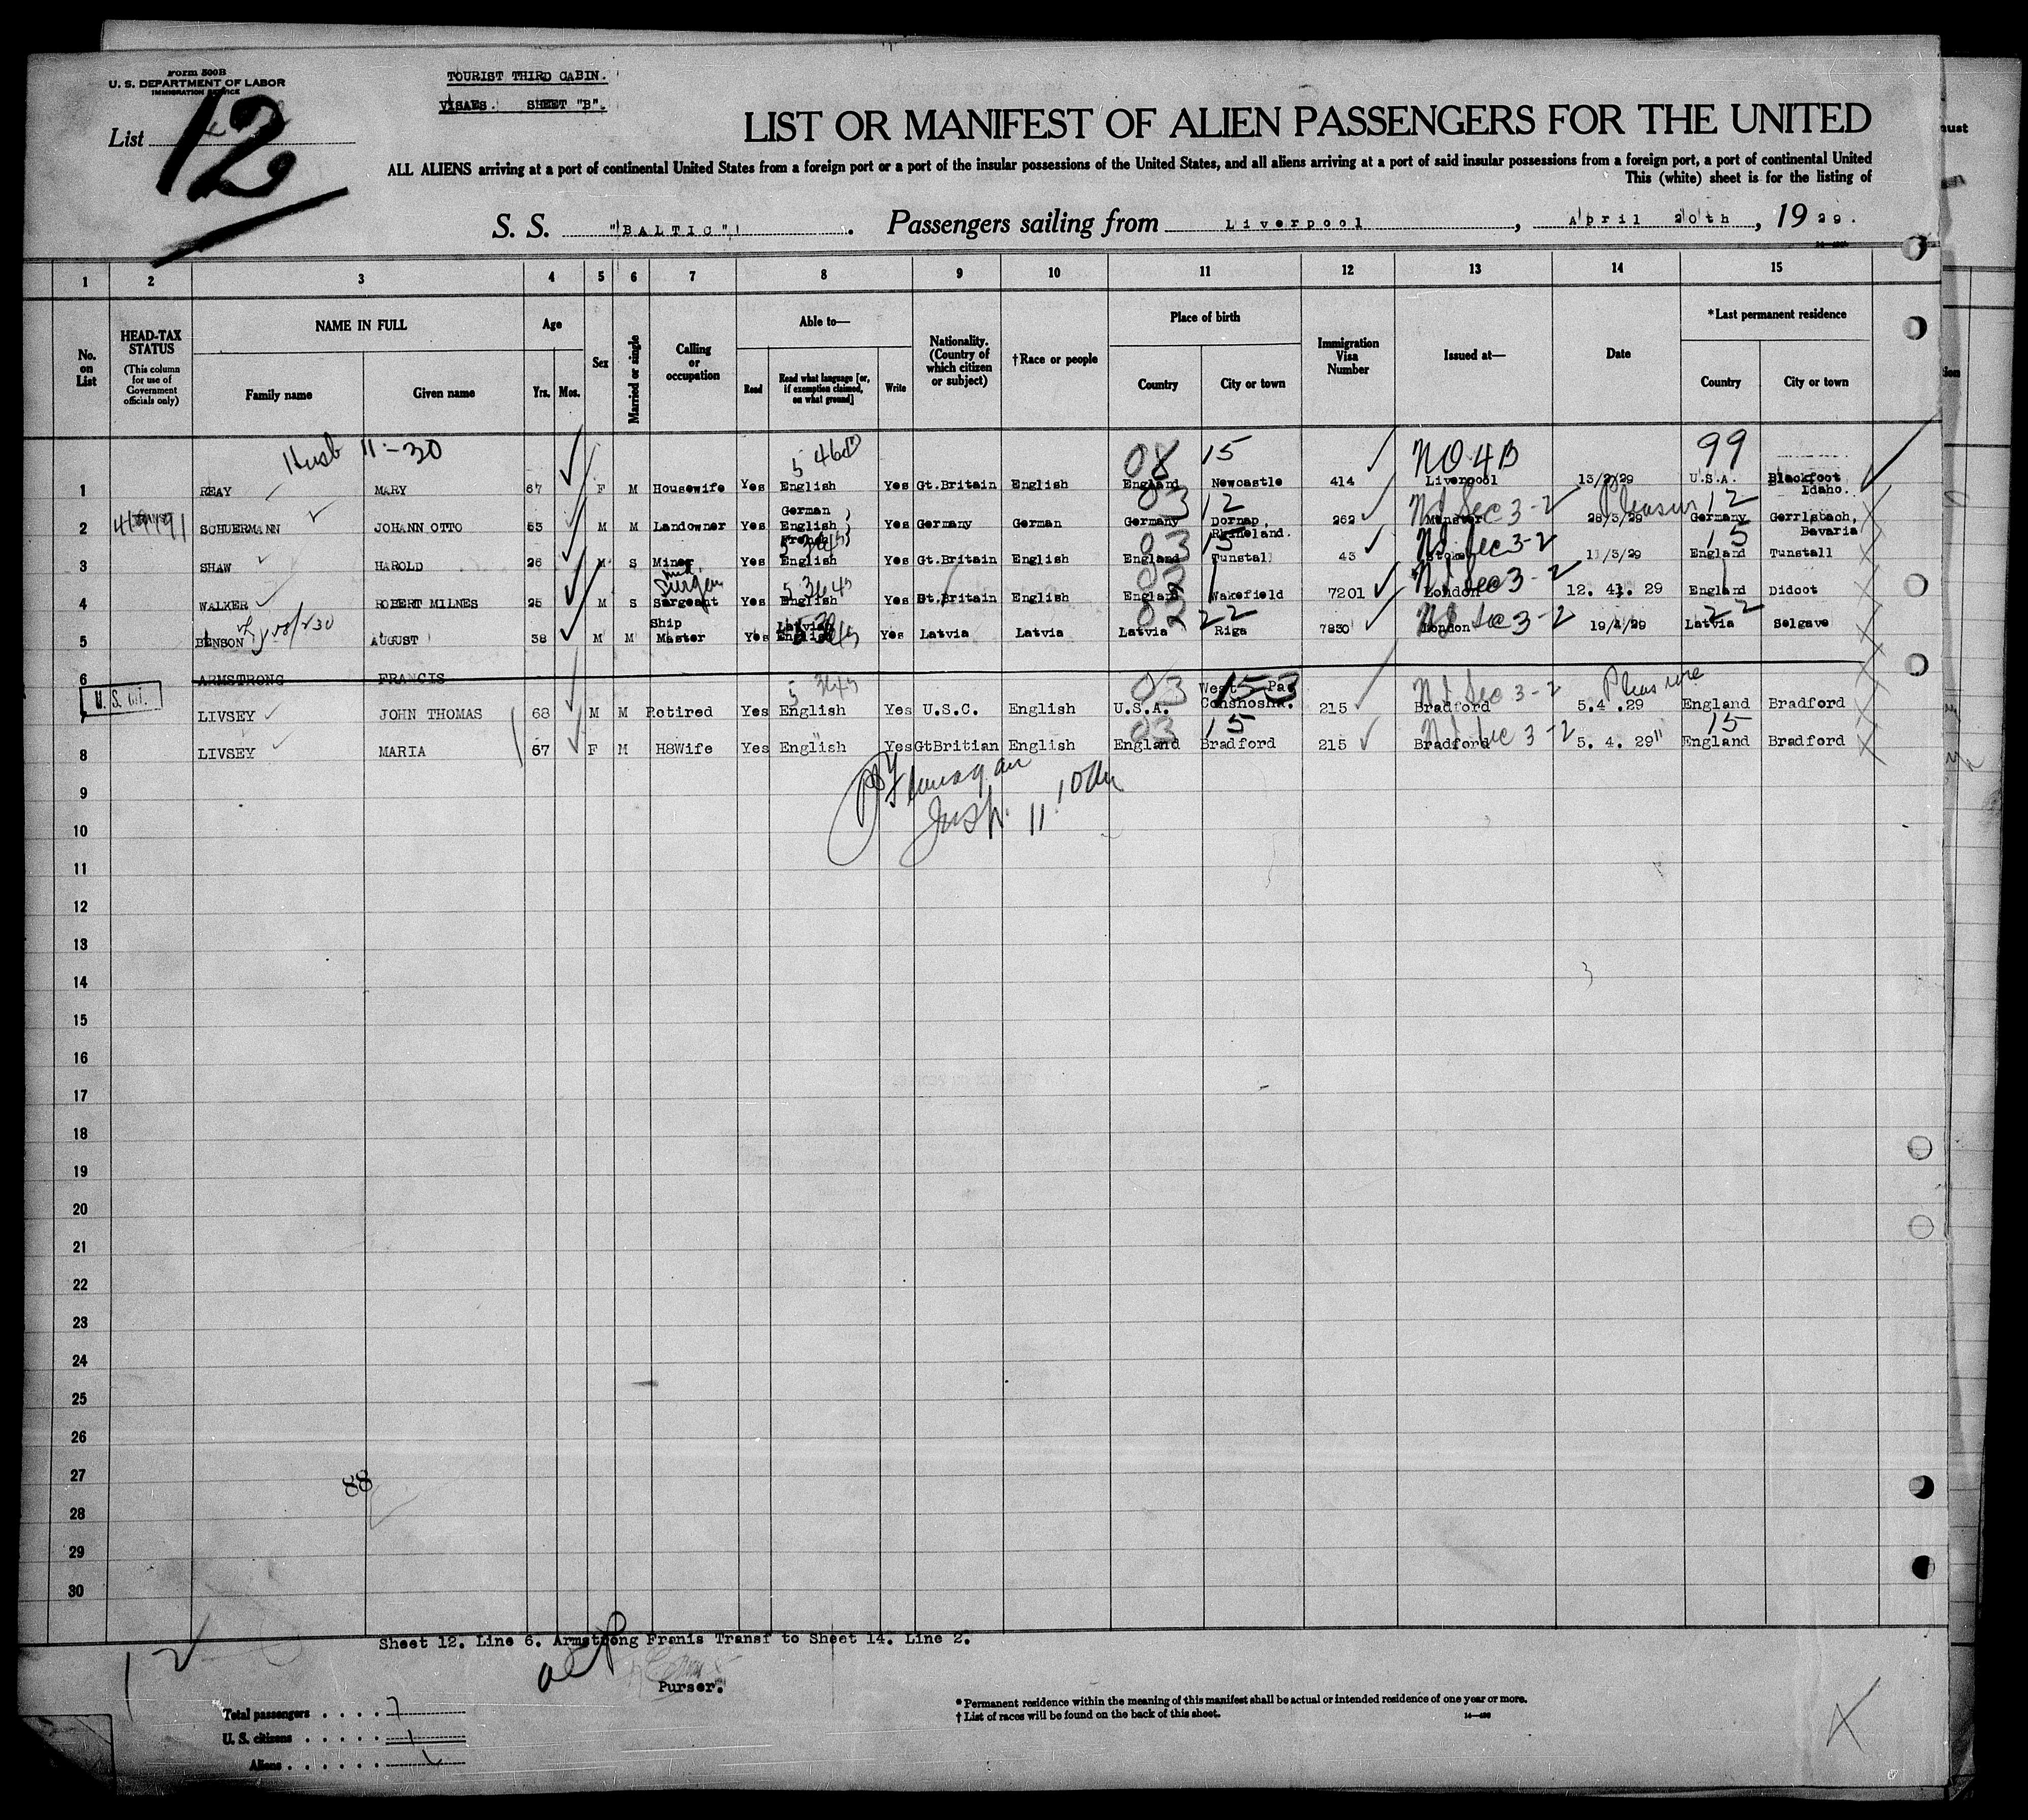 Form 500B
U. S. DEPARTMENT OF LABOR
IMMIGRATION SERVICE
TOURIST THIRD CABIN.
VISAES. SHEET "B".
List 12
LIST OR MANIFEST OF ALIEN PASSENGERS FOR THE UNITED
ALL ALIENS arriving at a port of continental United States from a foreign port or a port of the insular possessions of the United States, and all aliens arriving at a port of said insular possessions from a foreign port, a port of continental United
This (white) sheet is for the listing of
S. S. "BALTIC" . Passengers sailing from Liverpool , April 20th , 19 29.
1 2 3 4 5 6 7 8 9 10 11 12 13 14 15
No. on List
HEAD-TAX STATUS (This column for use of Government officials only)
NAME IN FULL Family name Given name
Age Yrs. Mos.
Sex
Married or single
Calling or occupation
Able to— Read Read what language [or, if exemption claimed, on what ground] Write
Nationality. (Country of which citizen or subject)
†Race or people
Place of birth Country City or town
Immigration Visa Number
Issued at—
Date
*Last permanent residence Country City or town
Husb 11-30 5 08 15 NO 4B 99
1 REAY MARY 67 F M Housewife Yes English Yes Gt.Britain English England Newcastle 414 Liverpool 13/2/29 U.S.A. Blackfoot Idaho.
03 12 Nl Sec 3-2 Pleasure 12
2 SCHUERMANN JOHANN OTTO 53 M M Landowner Yes German, English, French Yes Germany German Germany Dornap, Rhineland. 262 Munster 28/3/29 Germany Bavaria
03 15 Nl Sec 3-2 15
3 SHAW HAROLD 26 M S Miner Yes English Yes Gt.Britain English England Tunstall 43 Stoke 11/3/29 England Tunstall
Nl Sec 3-2
4 WALKER ROBERT MILNES 25 M S Sargeant Yes English Yes Gt.Britain English England Wakefield 7201 London 12. 4. 29 England Didcot
02 22 Nl Sec 3-2 22
5 BENSON AUGUST 38 M M Ship Master Yes Latvian English Yes Latvia Latvia Latvia Riga 7830 London 19/4/29 Latvia Selgave
6 ARMSTRONG FRANCIS
U. S. Cit.
03 153 Nl Sec 3-2 Pleasure
7 LIVSEY JOHN THOMAS 68 M M Retired Yes English Yes U.S.C. English U.S.A. West Conshosha. Pa 215 Bradford 5.4 .29 England Bradford
03 15 Nl Sec 3-2 " 15
8 LIVSEY MARIA 67 F M H8Wife Yes English Yes GtBritian English England Bradford 215 Bradford 5. 4. 29 England Bradford
Flanagan
Insp. 11
9
10
11
12
13
14
15
16
17
18
19
20
21
22
23
24
25
26
27
88
28
29
30
Sheet 12. Line 6. Armstrong Franis Transf to Sheet 14. Line 2.
Purser.
Total passengers . . . . 7
U. S. citizens . . . . . 1
Aliens . . . . . .
* Permanent residence within the meaning of this manifest shall be actual or intended residence of one year or more.
† List of races will be found on the back of this sheet.